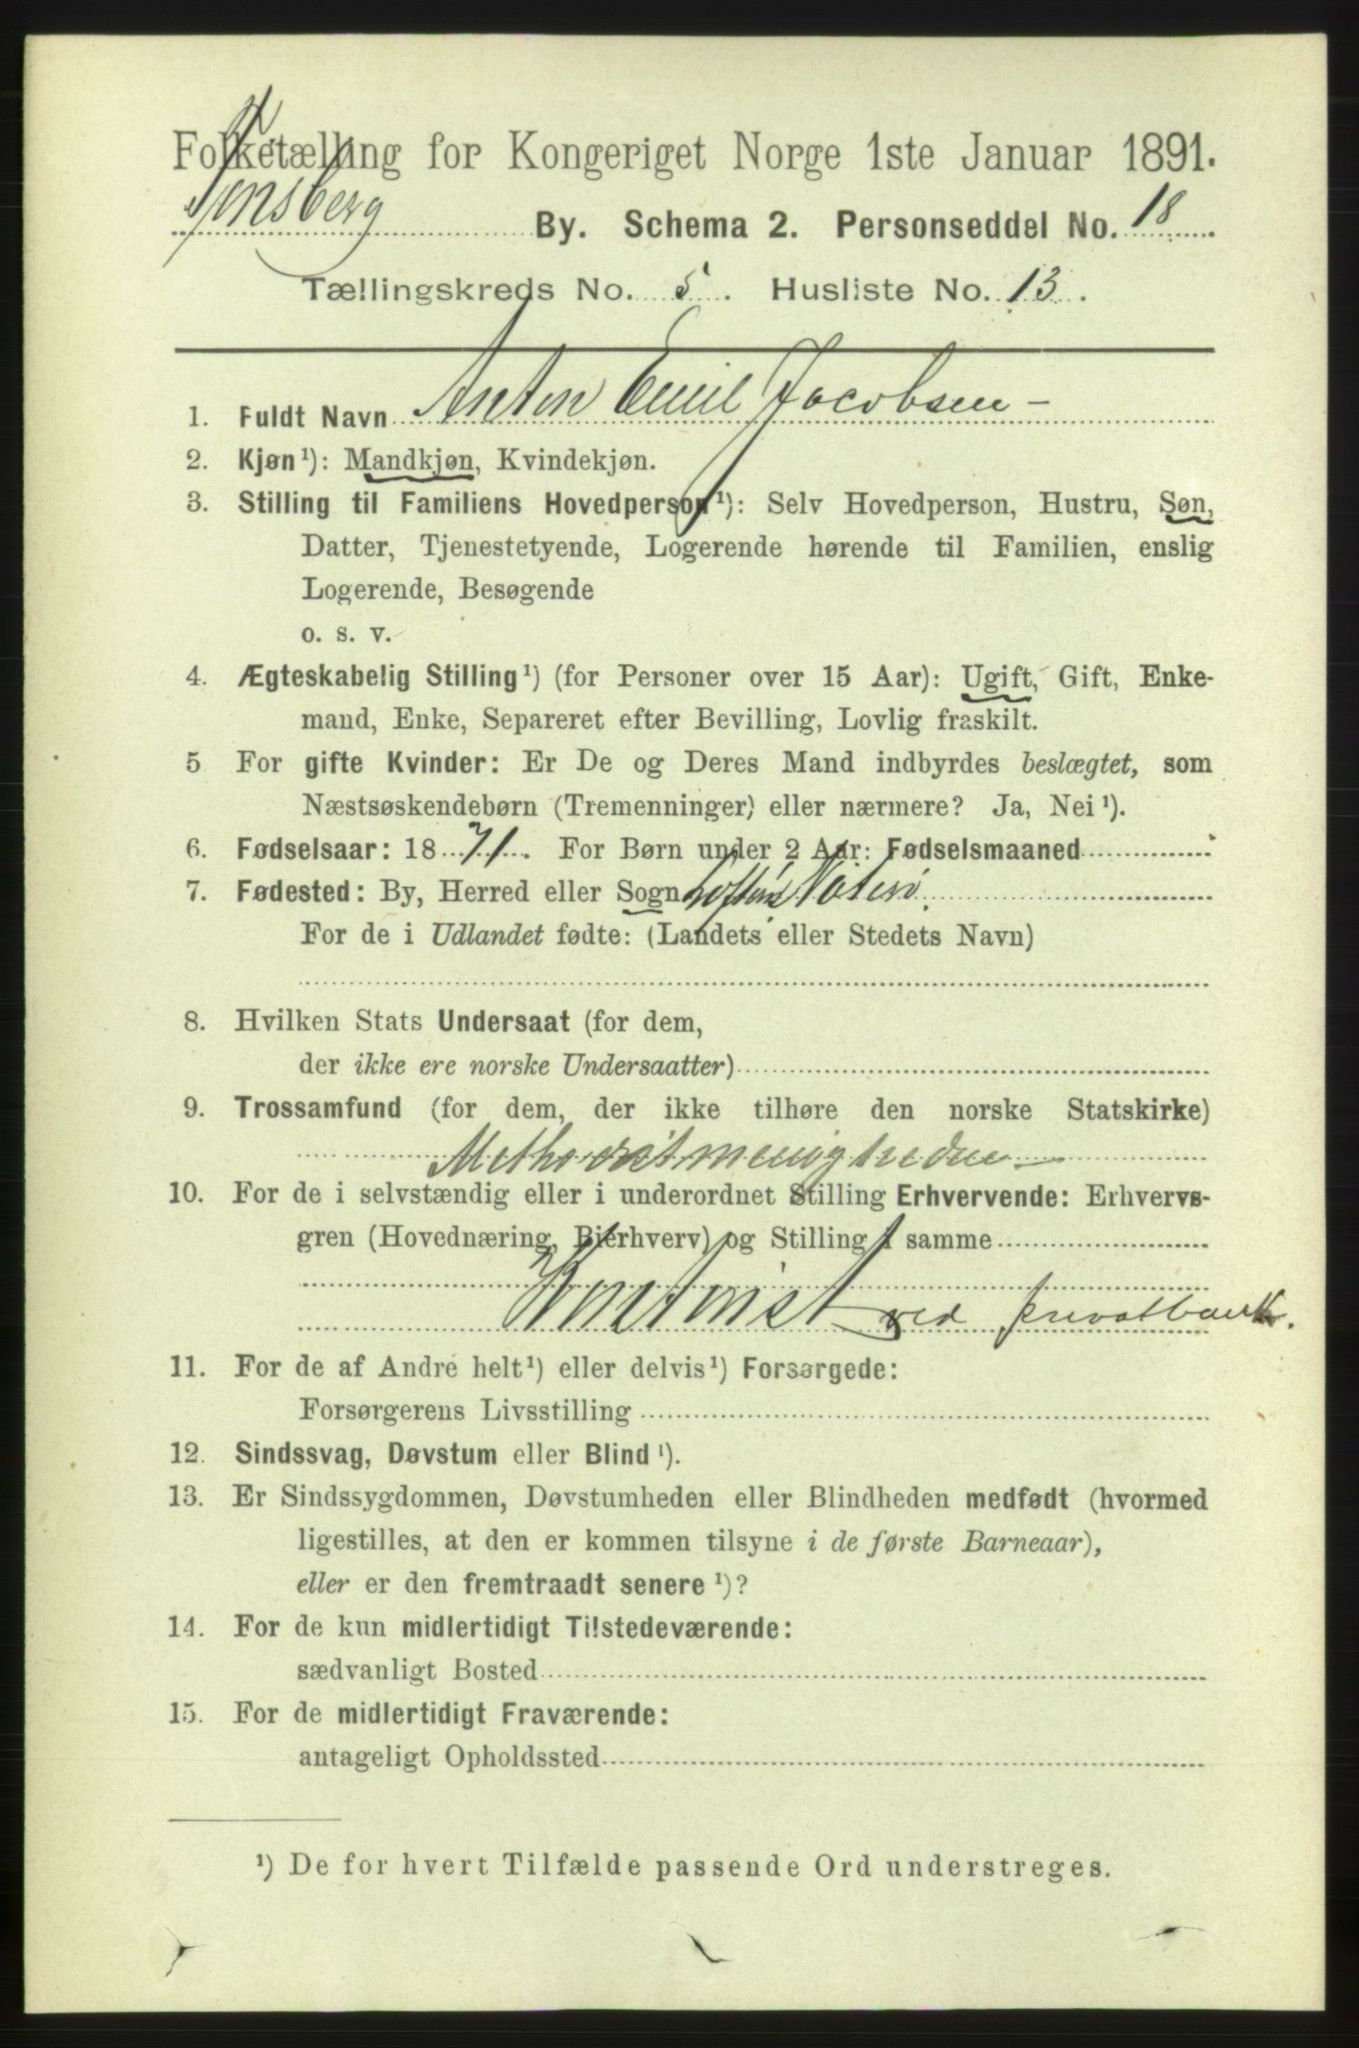 Folketælling for Kongeriget Norge 1ste Januar 1891.
Tønsberg By. Schema 2. Personseddel No. 18
Tællingskreds No. 5. Husliste No. 13.
1. Fuldt Navn Anton Emil Jacobsen
2. Kjøn¹): Mandkjøn, Kvindekjøn.
3. Stilling til Familiens Hovedperson¹): Selv Hovedperson, Hustru, Søn,
Datter, Tjenestetyende, Logerende hørende til Familien, enslig
Logerende, Besøgende
o. s. v.
4. Ægteskabelig Stilling¹) (for Personer over 15 Aar): Ugift, Gift, Enke-
mand, Enke, Separeret efter Bevilling, Lovlig fraskilt.
5 For gifte Kvinder: Er De og Deres Mand indbyrdes beslægtet, som
Næstsøskendebørn (Tremenninger) eller nærmere? Ja, Nei¹).
6. Fødselsaar: 1871. For Børn under 2 Aar: Fødselsmaaned
7. Fødested: By, Herred eller Sogn Nøterø.
For de i Udlandet fødte: (Landets eller Stedets Navn)
8. Hvilken Stats Undersaat (for dem,
der ikke ere norske Undersaatter)
9. Trossamfund (for dem, der ikke tilhøre den norske Statskirke)
Methodistmenigheden
10. For de i selvstændig eller i underordnet Stilling Erhvervende: Erhvervs-
gren (Hovednæring, Bierhverv) og Stilling i samme
Kontorist ved privatbank.
11. For de af Andre helt¹) eller delvis¹) Forsørgede:
Forsørgerens Livsstilling
12. Sindssvag, Døvstum eller Blind¹).
13. Er Sindssygdommen, Døvstumheden eller Blindheden medfødt (hvormed
ligestilles, at den er kommen tilsyne i de første Barneaar),
eller er den fremtraadt senere¹)?
14. For de kun midlertidigt Tilstedeværende:
sædvanligt Bosted
15. For de midlertidigt Fraværende:
antageligt Opholdssted
¹) De for hvert Tilfælde passende Ord understreges.